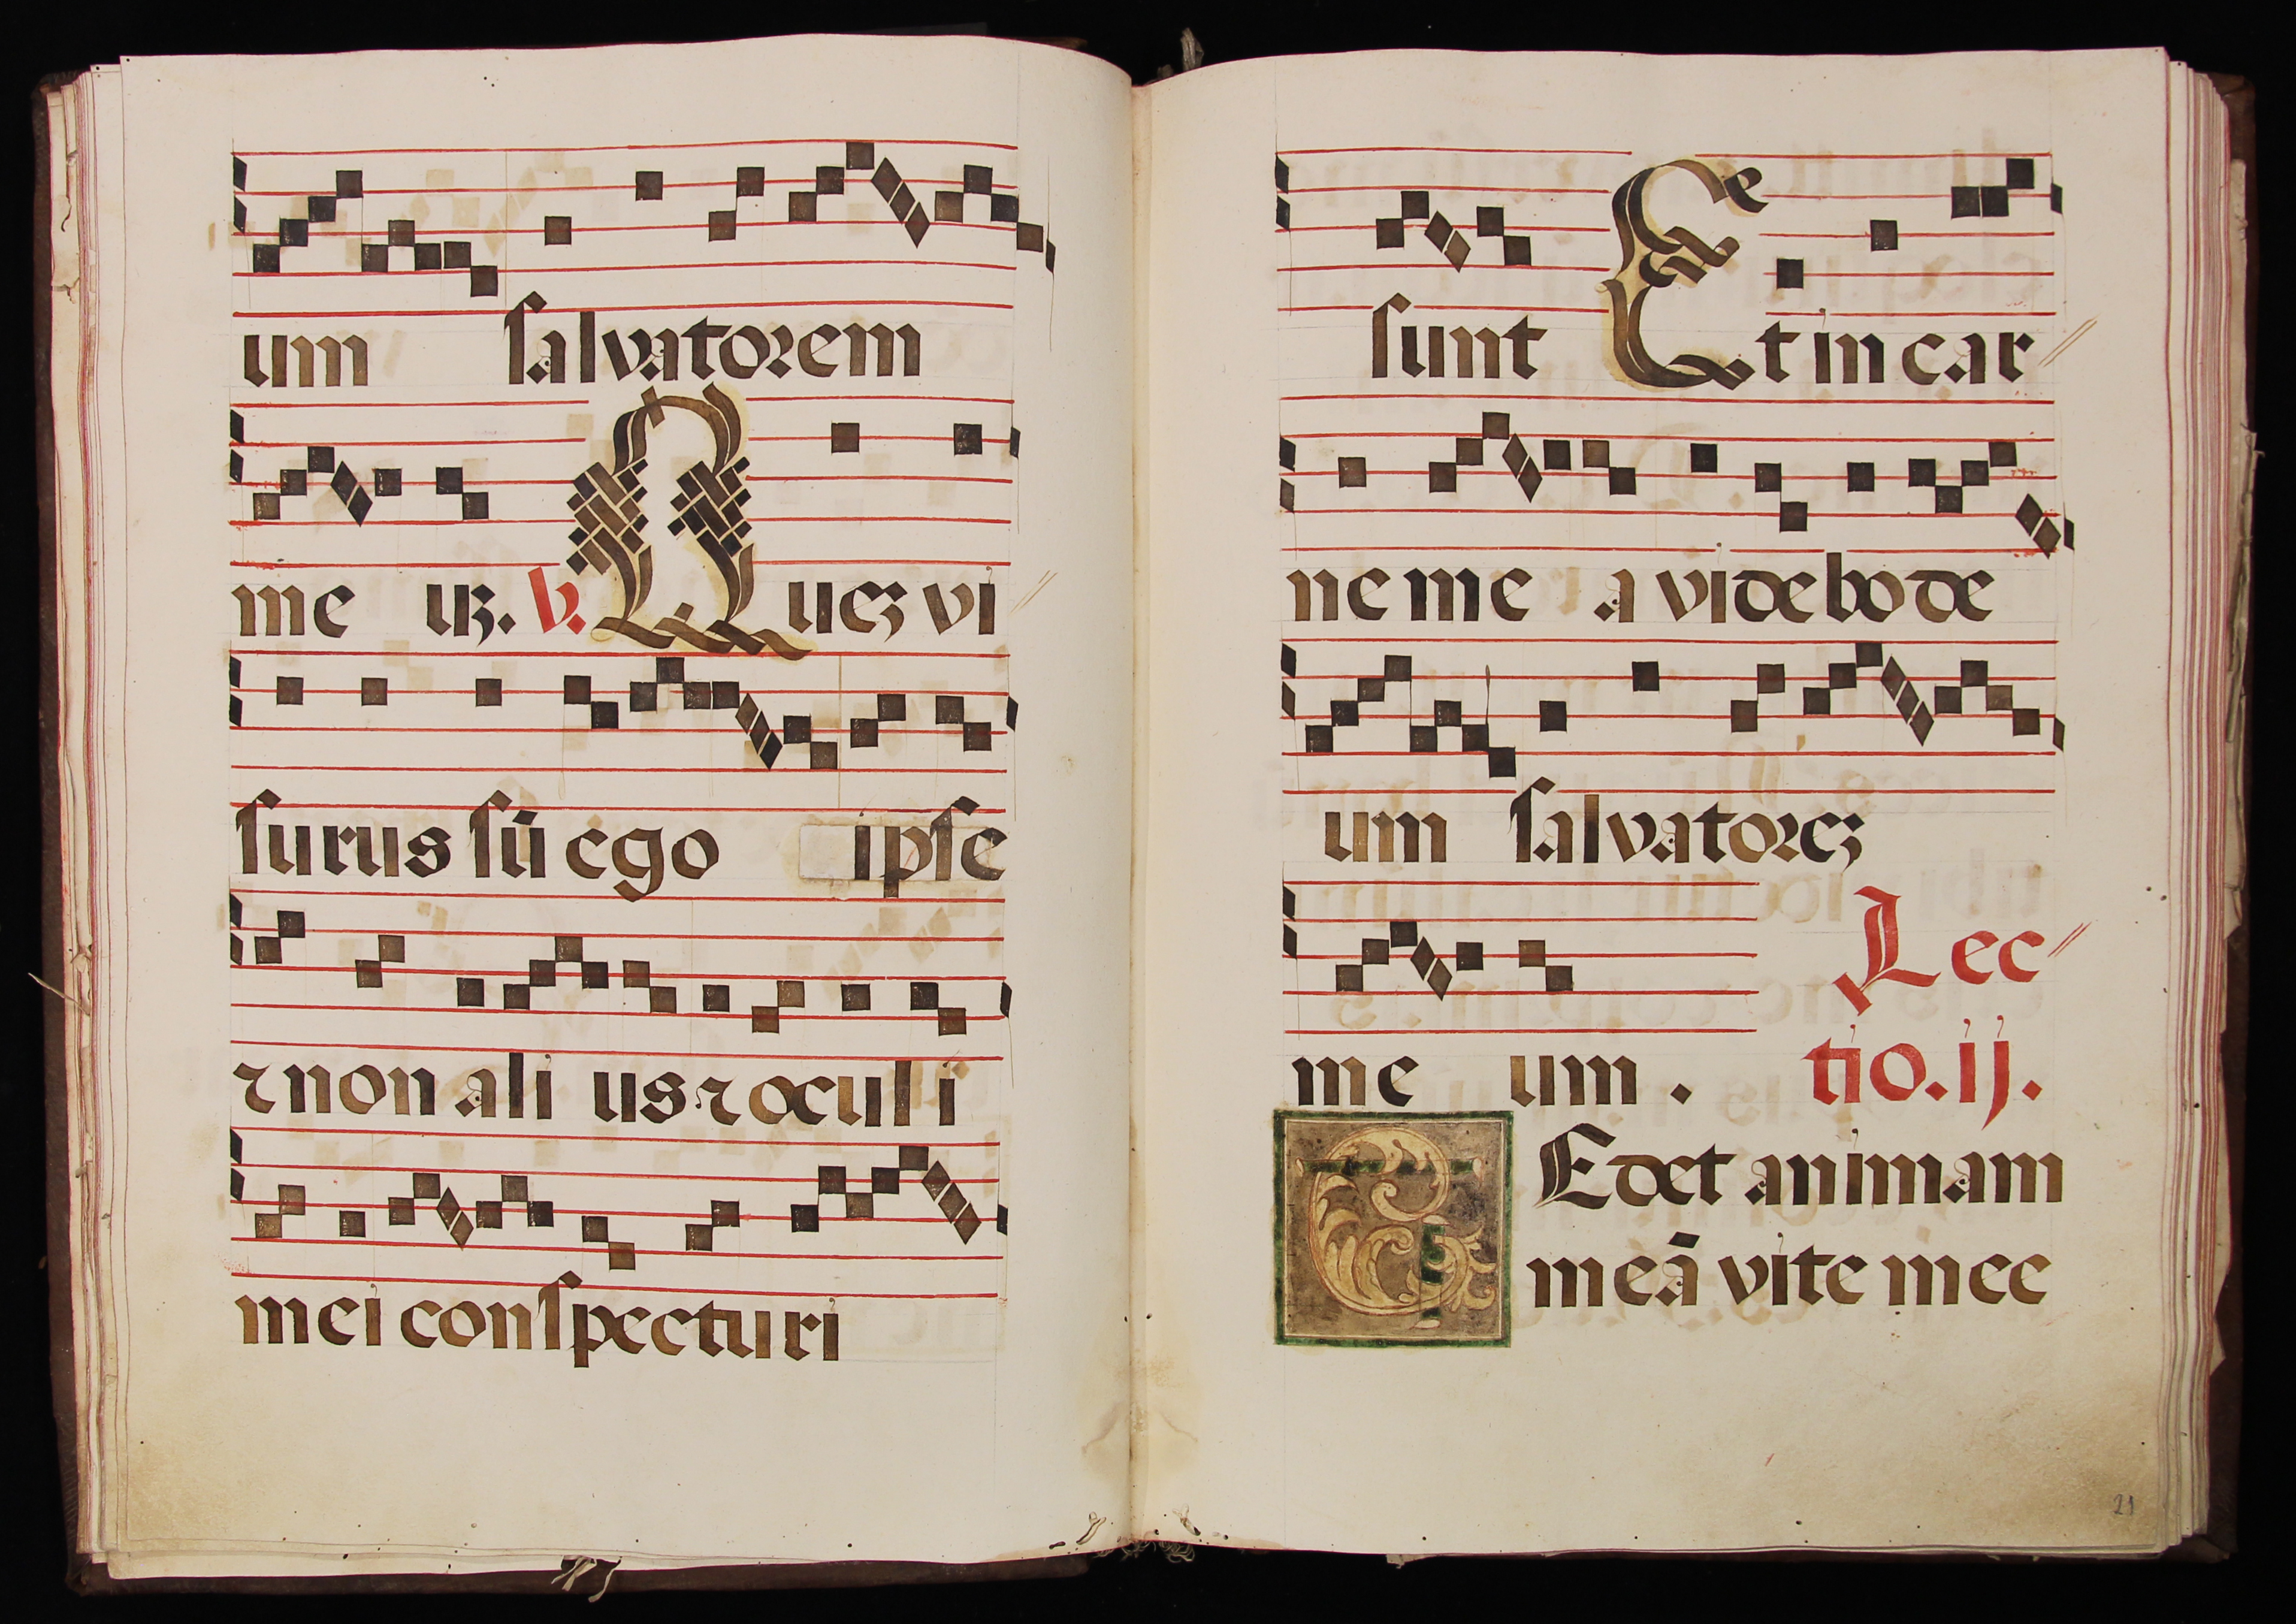 um salvatorem
me uꝫ. v. Queꝫ vi
surus sū ego ipse
⁊ non ali us ⁊ oculi
mei conspecturi
sunt Et in car
ne me a videbo de
um salvatoreꝫ
me um . Lec
tio. ij.
TEdet animam
meā vite mee
21